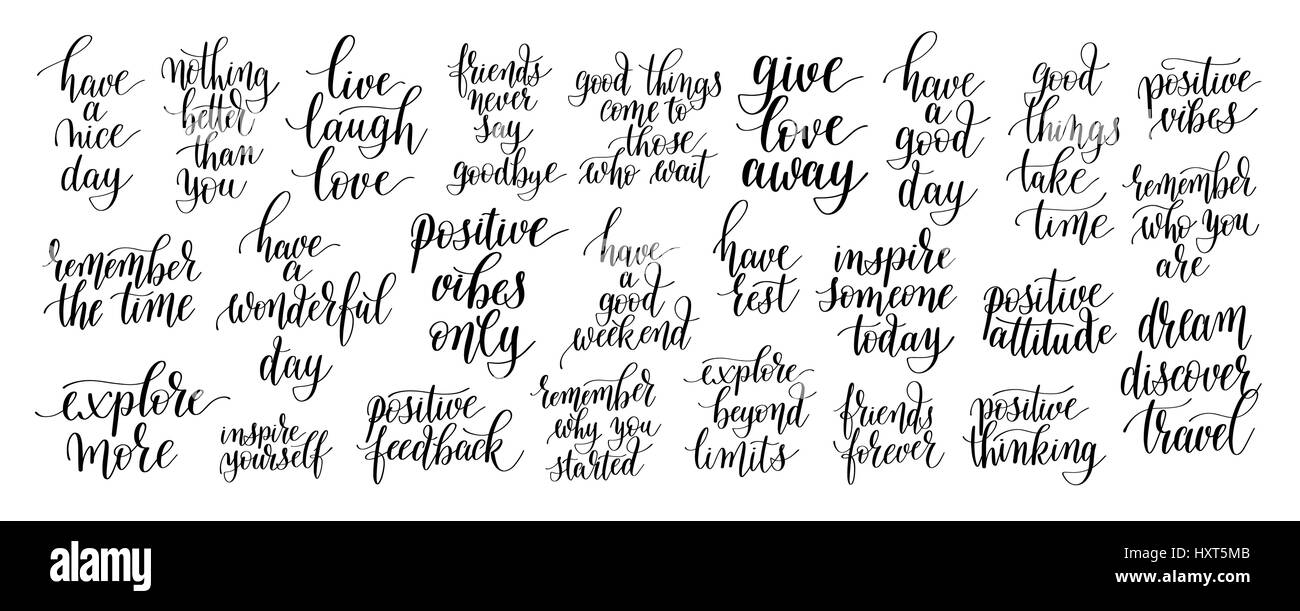 have
a
nice
day
nothing
better
than
you
live
laugh
love
friends
never
say
goodbye
good things
come to
those
who wait
give
love
away
have
a
good
day
good
things
take
time
positive
vibes
remember
who you
are
remember
the time
have
a
wonderful
day
positive
vibes
only
have
a
good
weekend
have
rest
inspire
someone
today
positive
attitude
dream
discover
travel
explore
more
inspire
yourself
positive
feedback
remember
why you
started
explore
beyond
limits
friends
forever
positive
thinking
alamy
Image ID: HXT5MB
www.alamy.com